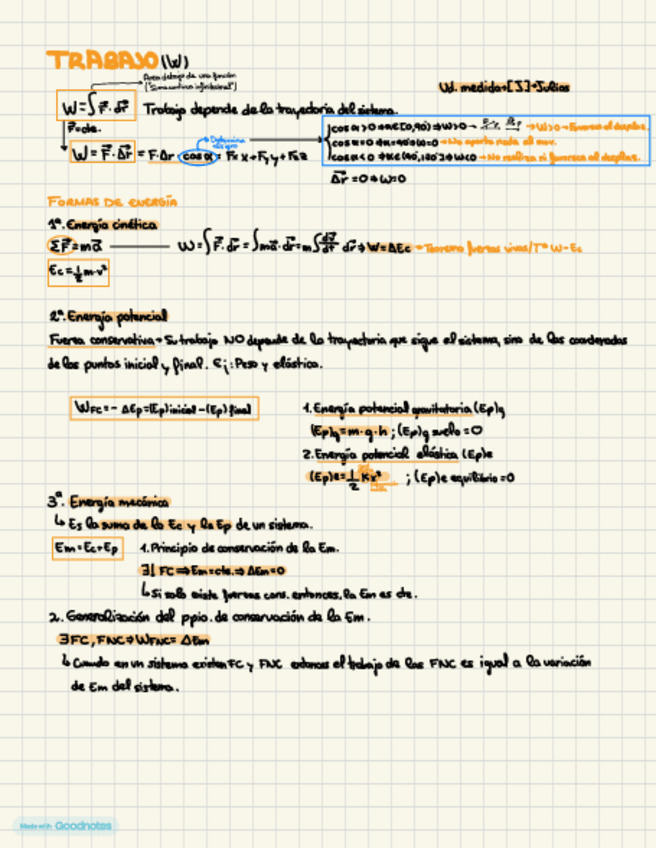 TRABAJO (W)
Área debajo de una función
Ud. medida→[J]→Julios
W=∫F⃗·dr⃗ Trabajo depende de la trayectoria del sistema.
F⃗=cte.
W=F⃗·Δr⃗ = F·Δr cosα = Fx x+Fy y+Fz z
cosα>0→α∈[0,90)⇒W>0→ W>0→Favorece al desplaz.
cosα=0→α=90→W=0→No aporta nada al mov.
→No realiza ni favorece al desplaz.
Δr⃗=0→W=0
FORMAS DE ENERGÍA
1ª. Energía cinética
ΣF⃗=ma⃗ W=∫F⃗·dr⃗=∫ma⃗·dr⃗=m∫dv⃗/dt dr⃗→W=ΔEc→Teorema fuerzas vivas/Tª W-Ec
Ec=½m·v²
2ª. Energía potencial
Fuerza conservativa→Su trabajo NO depende de la trayectoria que sigue el sistema, sino de las coordenadas
de los puntos inicial y final. Ej: Peso y elástica.
WFC=-ΔEp=(Ep)inicial-(Ep)final
1. Energía potencial gravitatoria (Ep)g
(Ep)g=m·g·h ; (Ep)g suelo=0
2. Energía potencial elástica (Ep)e
(Ep)e=½Kx² ; (Ep)e equilibrio=0
3ª. Energía mecánica
↳ Es la suma de la Ec y la Ep de un sistema.
Em=Ec+Ep 1. Principio de conservación de la Em.
∃! FC⇒Em=cte.⇒ΔEm=0
↳ Si solo existe fuerzas cons. entonces, la Em es cte.
2. Generalización del ppio. de conservación de la Em.
∃FC, FNC⇒WFNC=ΔEm
↳ Cuando en un sistema existen FC y FNC entonces el trabajo de las FNC es igual a la variación
de Em del sistema.
Made with Goodnotes